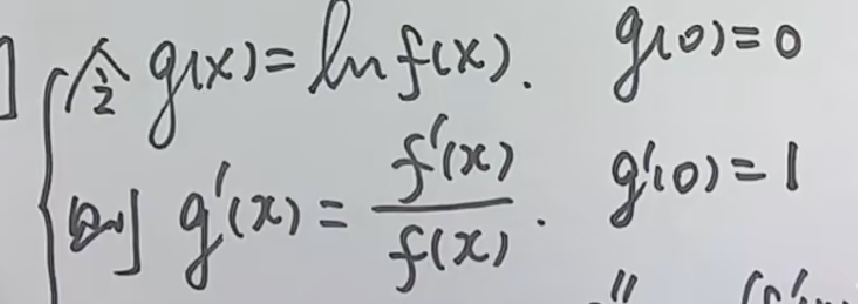 令 g(x) = ln f(x). g(0) = 0
则 g'(x) = f'(x) / f(x) . g'(0) = 1